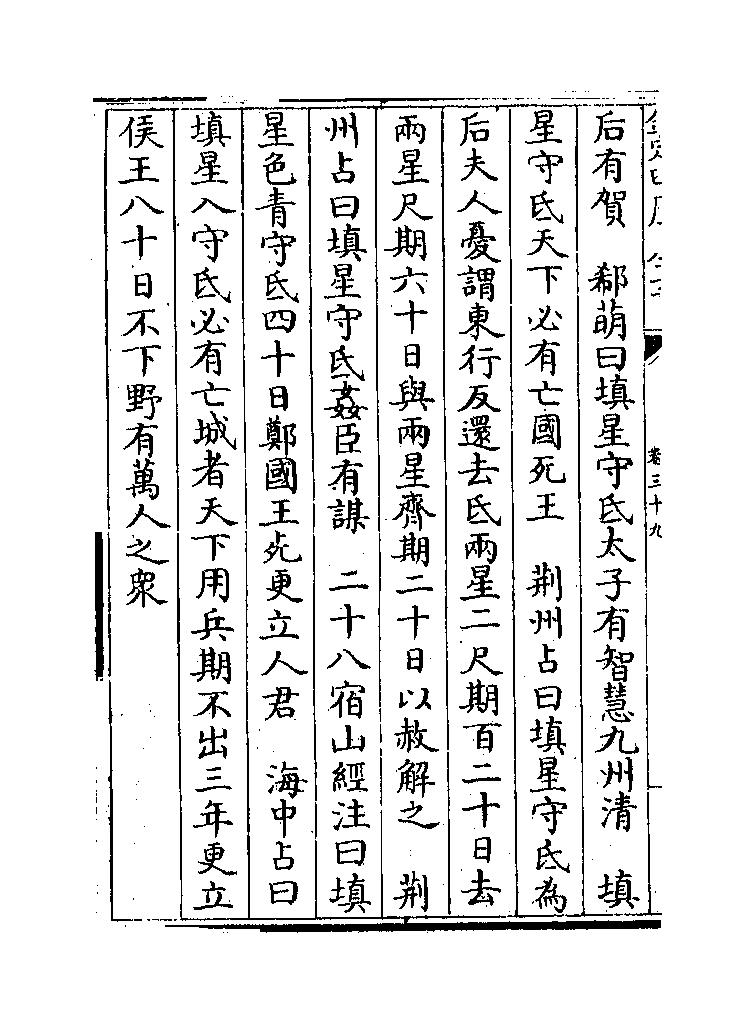 后有賀　郗萌曰填星守氐太子有智慧九州清　填
星守氐天下必有亡國死王　荆州占曰填星守氐為
后夫人憂謂東行反還去氐兩星二尺期百二十日去
兩星尺期六十日與兩星齊期二十日以赦解之　荆
州占曰填星守氐姦臣有謀　二十八宿山經注曰填
星色青守氐四十日鄭國王死更立人君　海中占曰
填星入守氐必有亡城者天下用兵期不出三年更立
侯王八十日不下野有萬人之衆
卷三十九